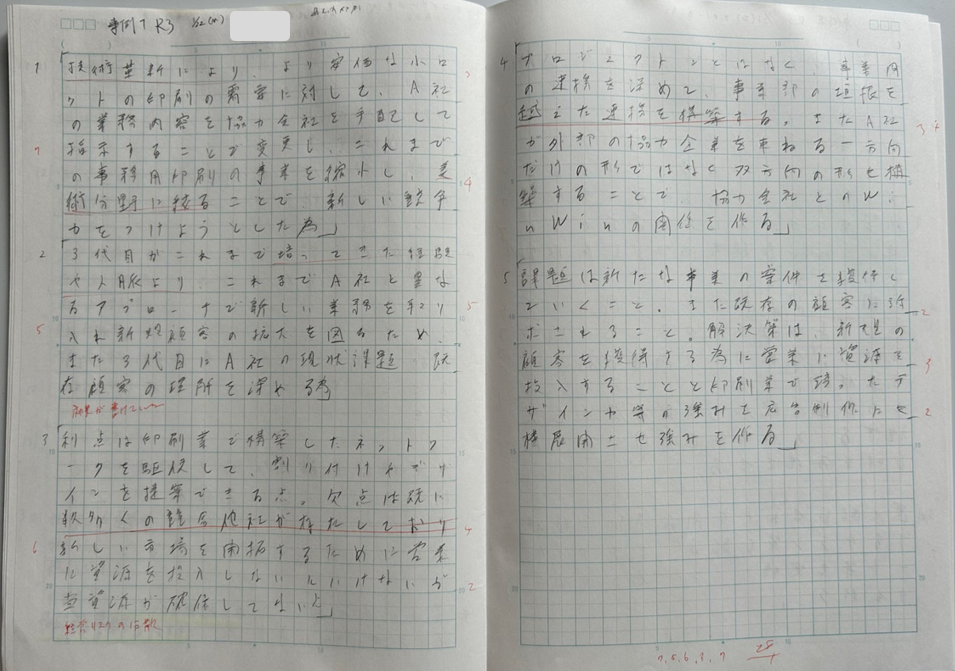 事例1 R3
1
技術革新により、より安価な小ロ
ットの印刷の需要に対して、A社
の業務内容を協力会社を手配して
指示することで変更し、これまで
の事務用印刷の事業を縮小し、美
術分野に絞ることで、新しい競争
力をつけようとした為」
2
3代目がこれまで培ってきた経験
や人脈より、これまでA社と異な
るアプローチで新しい業務を取り
入れ新規顧客の拡大を図るため、
また3代目にA社の現状課題、既
存顧客の理解を深める為
効果が書けていない
3
利点は印刷業で構築したネットワ
ークを駆使して、割り付けやデザ
インを提案できる点。欠点は既に
数多くの競合他社が存在しており
新しい市場を開拓するために営業
に資源を投入しないといけないが
営業資源が確保してない点」
経営リスクの分散
4
プロジェクトごとになく、事業内
の連携を深めて、事業部の垣根を
越えた連携を構築する。またA社
が外部の協力企業を束ねる一方向
だけの形ではなく双方向の形を構
築することで、協力会社とのWi
nWinの関係を作る」
5
課題は新たな事業の案件を獲得し
ていくこと。また既存の顧客に
されること。解決策は、新規の
顧客を獲得する為に営業に資源を
投入することと印刷業で培ったデ
ザインカ等の強みを広告制作にも
横展開させ強みを作る」
7,5,6,3,7
28